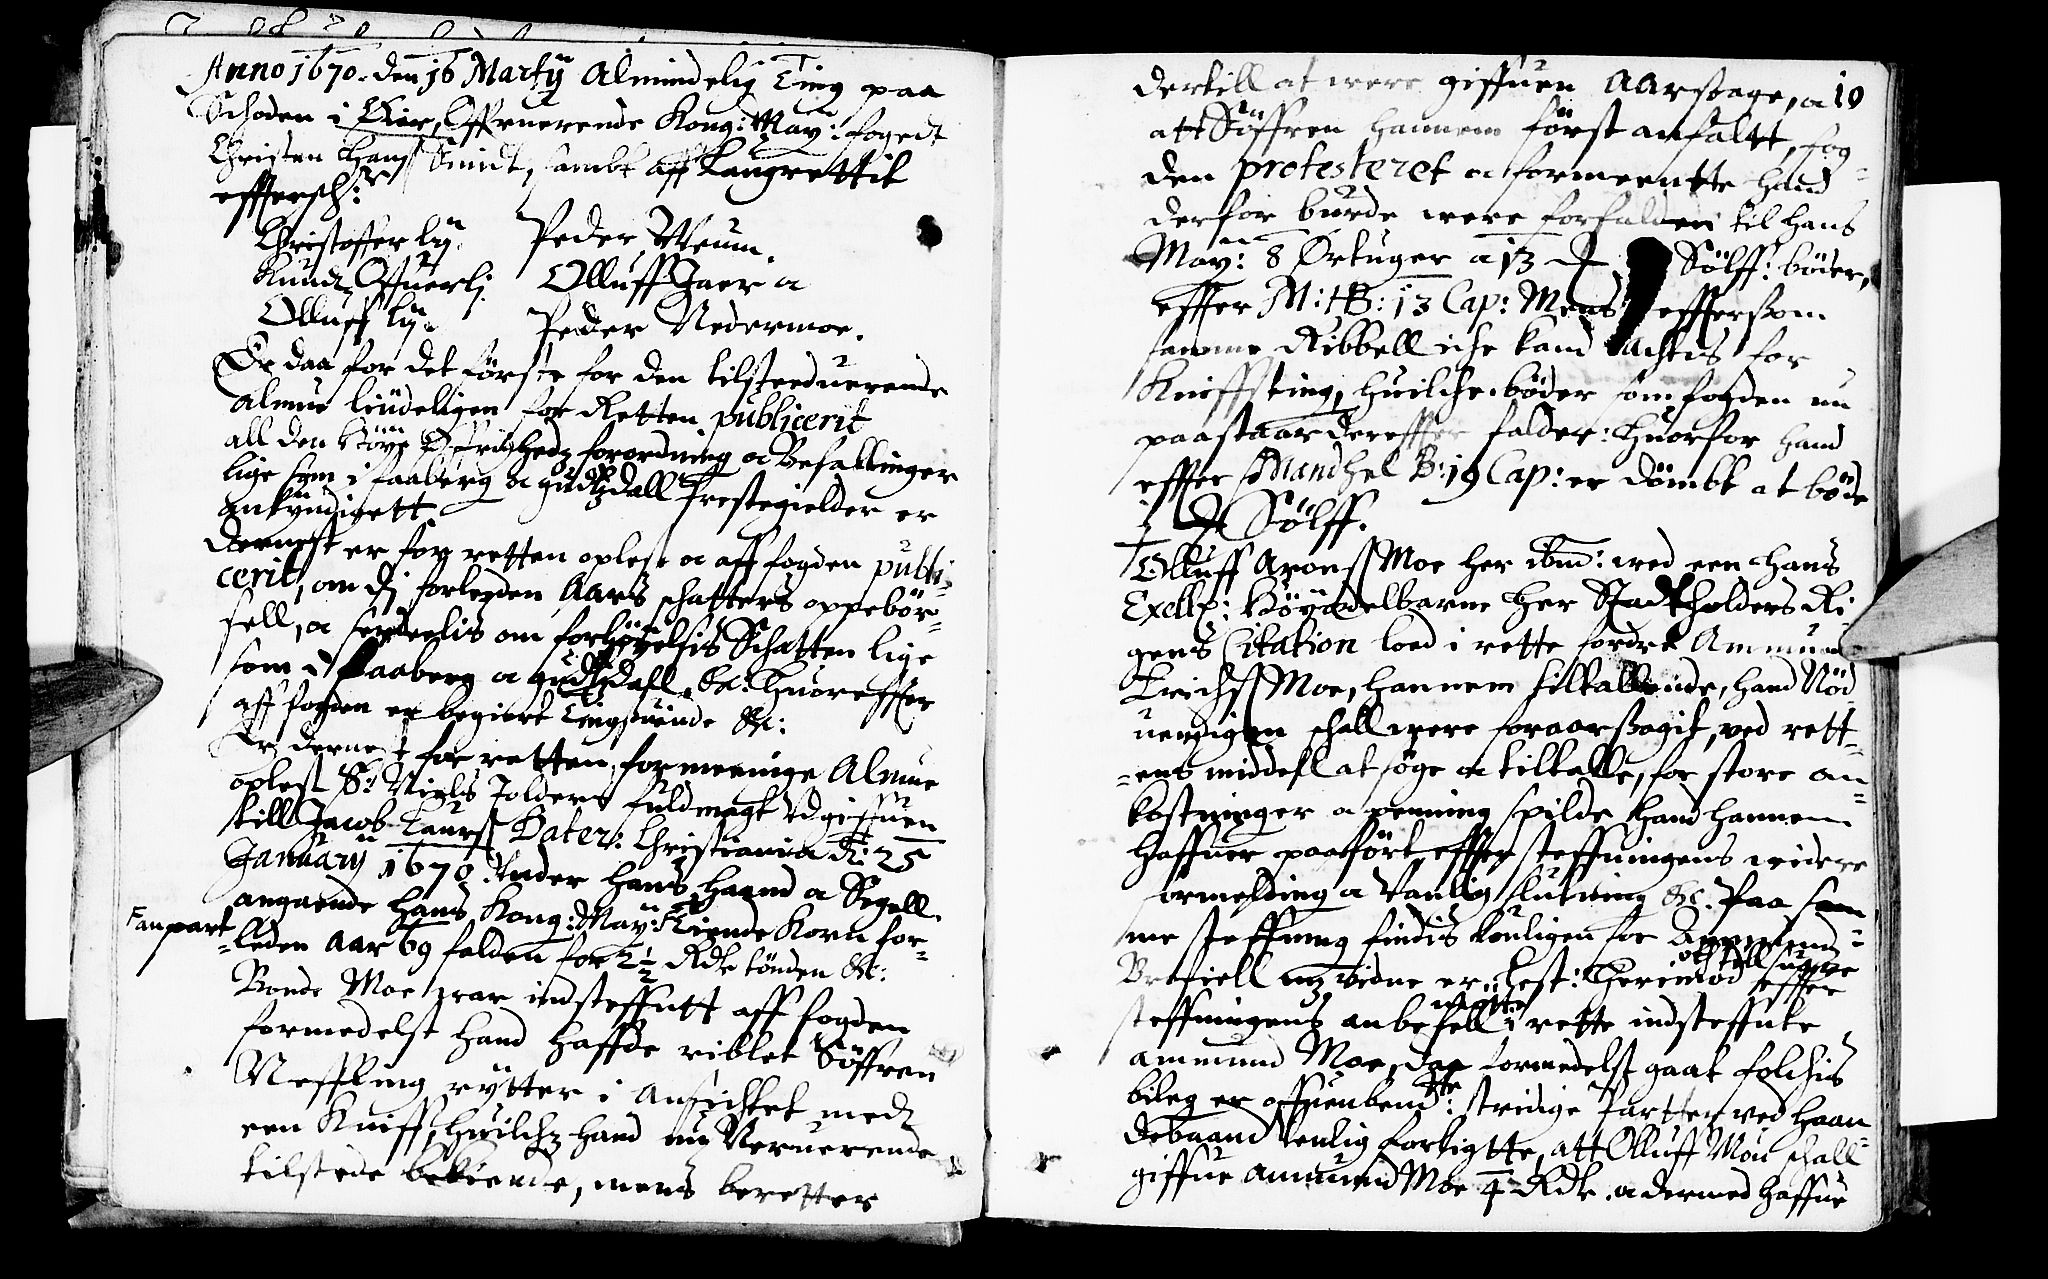 Anno 1670. den 16 Martij Almindelig Ting paa
Schoden i Øier, Offueruerende Kong: May: fogedt
Christen Hanß Smidt, sambt aff Laugrettit
effterschr:
Christoffer Lij. Peder Weum.
Knud Offuerlj Olluff Jaer a
Olluff Lij. Peder Nedermoe.
Er daa for det första for den tilstededuerende
Almue liudeligen for Retten publicerit
all den höye Øfrighedz forordning a Befallinger
lige som i faaberg a gudtzdall Prestegielder er
ankyndigett.
Dernest er for retten oplest a aff fogden publi-
cerit, om dj forleden Aars schatters oppebör-
sell, a serdeelis om forhöyelsis Schatten lige
som i faaberg a gudtzdall &c: Huoreffter
aff fogden er begiert tingsuinde &c:
Er dernest for retten for meenige Almue
oplest S: Nielß Tolders fuldmagt udgiffuen
till Jacob Laurß Dater: Christiania d: 25
Januarij 1670. under hans haand a Segell
angaaende Hans Kong: May: tiende Korn for-
leden aar 69 falden for 2½ Rdr tönden &c:
Fanpart
Bonde Moe war indsteffnett aff fogden
formedelst hand haffde riblet Söffren
Neffling rytter i Ansichtet med
een Knifff, huilchz hand nu Neruerende
tilstede bekiende, mens beretter
dertill at were giffuen Aarsage, a 19
att Söffren hannem först anfaltt, fog-
den protesteret a formeentte hand
derfor burde were forfalden til hans
May: 8 Örtuger a 13 Sölff: böder,
effter M: B: 13 Cap: Mens effterßom
samme Ribbell iche kand achtis for
Kniffsting, huilche böder som fogden nu
paastaar dereffter falder: Huorfor hand
effter Mandhel B: 19 Cap: er dömbt at böde
Sölff.
Olluff Aronß Moe her ibm: wed een Hans
Exell: Höyædelbarne Her Stadtholders Ri-
gens Citation loed i rette fordre Ammund
Erichß Moe, hannem tiltallende, hand Nöd-
uendigen schall were foraarßagit, ved rett-
ens middell at söge a tiltalle, for store om-
kostninger a penning spilde hand hannem
haffuer paafört effter steffningens widere
formelding a Vanlig slutning &c. Paa sam-
me steffning findis kouligen for Ammund
till suare
nu vidne er lest: Therimod effter
steffningens anbefell motte i rette indsteffnte
ammund Moe, daa formedelst gaat folchis
bileg er offuenbemt:te stridige Partter ved haan-
debaand venlig forligtte, att Olluff Moe schall
giffue Ammund Moe 4 Rdr. a dermed haffue